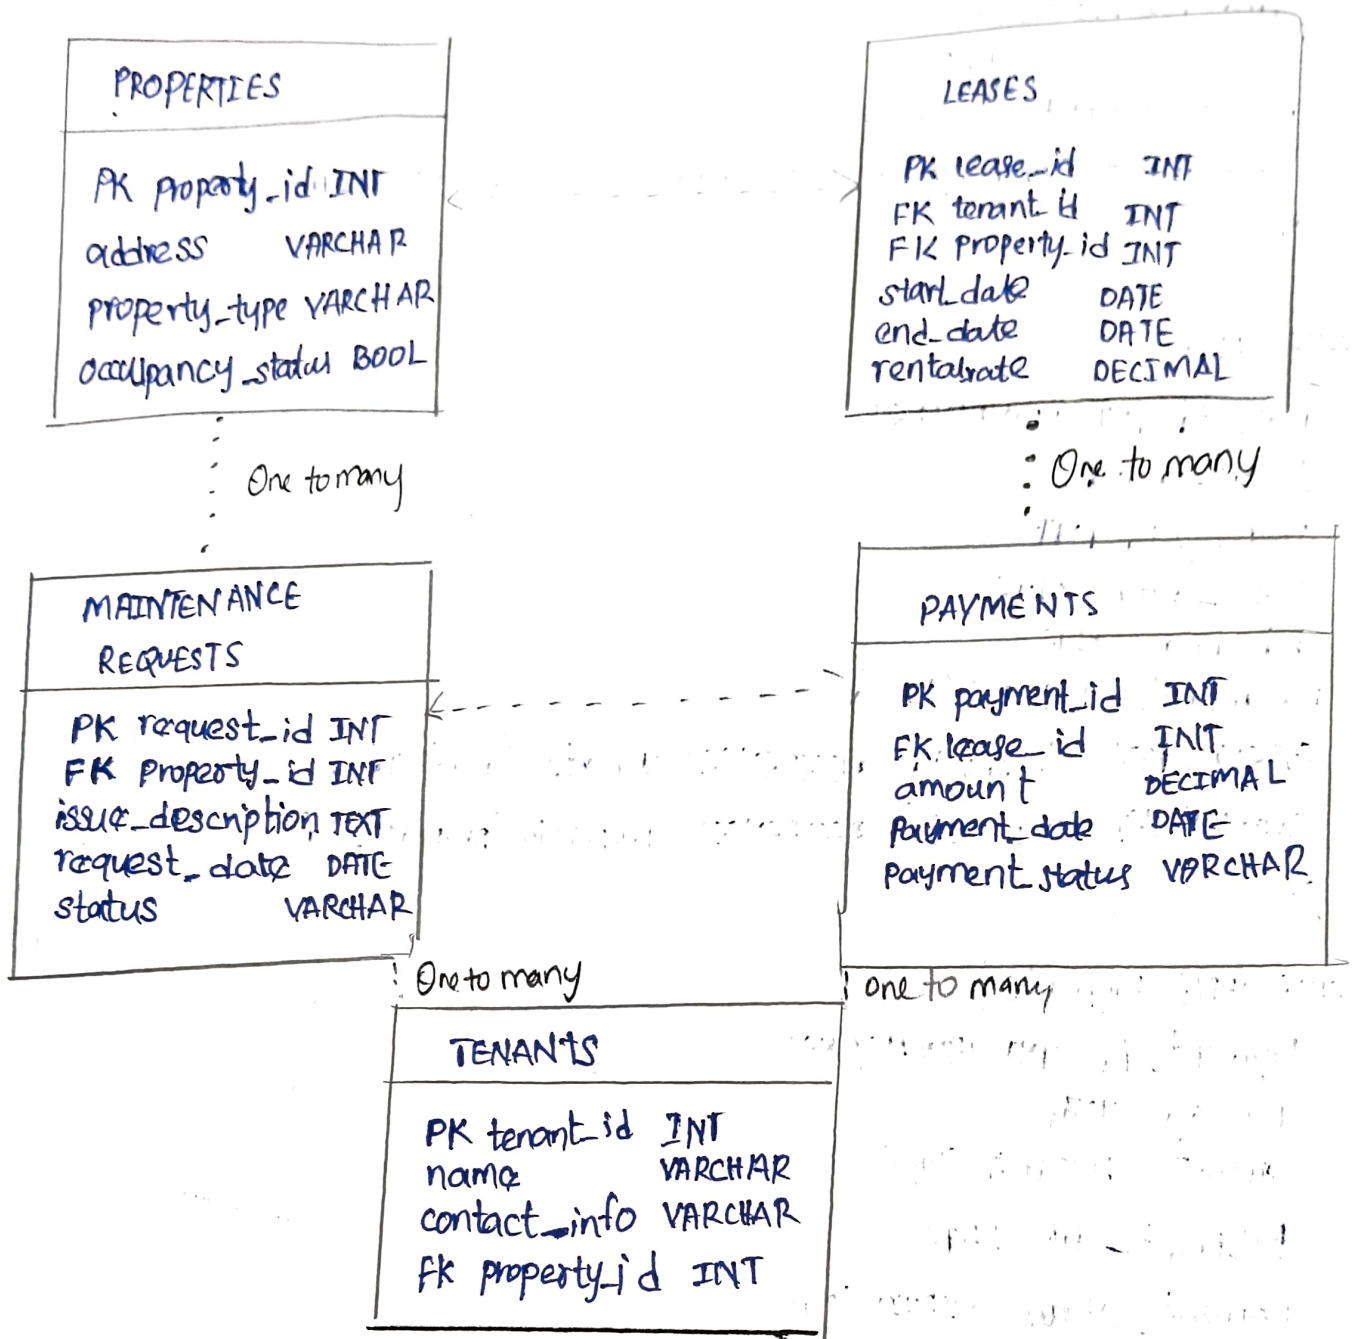 PROPERTIES
PK property_id INT
address VARCHAR
property_type VARCHAR
occupancy_status BOOL
One to many
LEASES
PK lease_id INT
FK tenant_id INT
FK property_id INT
start_date DATE
end_date DATE
rentalrate DECIMAL
One to many
MAINTENANCE
REQUESTS
PK request_id INT
FK Property_id INT
issue_description TEXT
request_date DATE
status VARCHAR
One to many
PAYMENTS
PK payment_id INT
FK lease_id INT
amount DECIMAL
Payment_date DATE
payment_status VARCHAR
one to many
TENANTS
PK tenant_id INT
name VARCHAR
contact_info VARCHAR
FK property_id INT